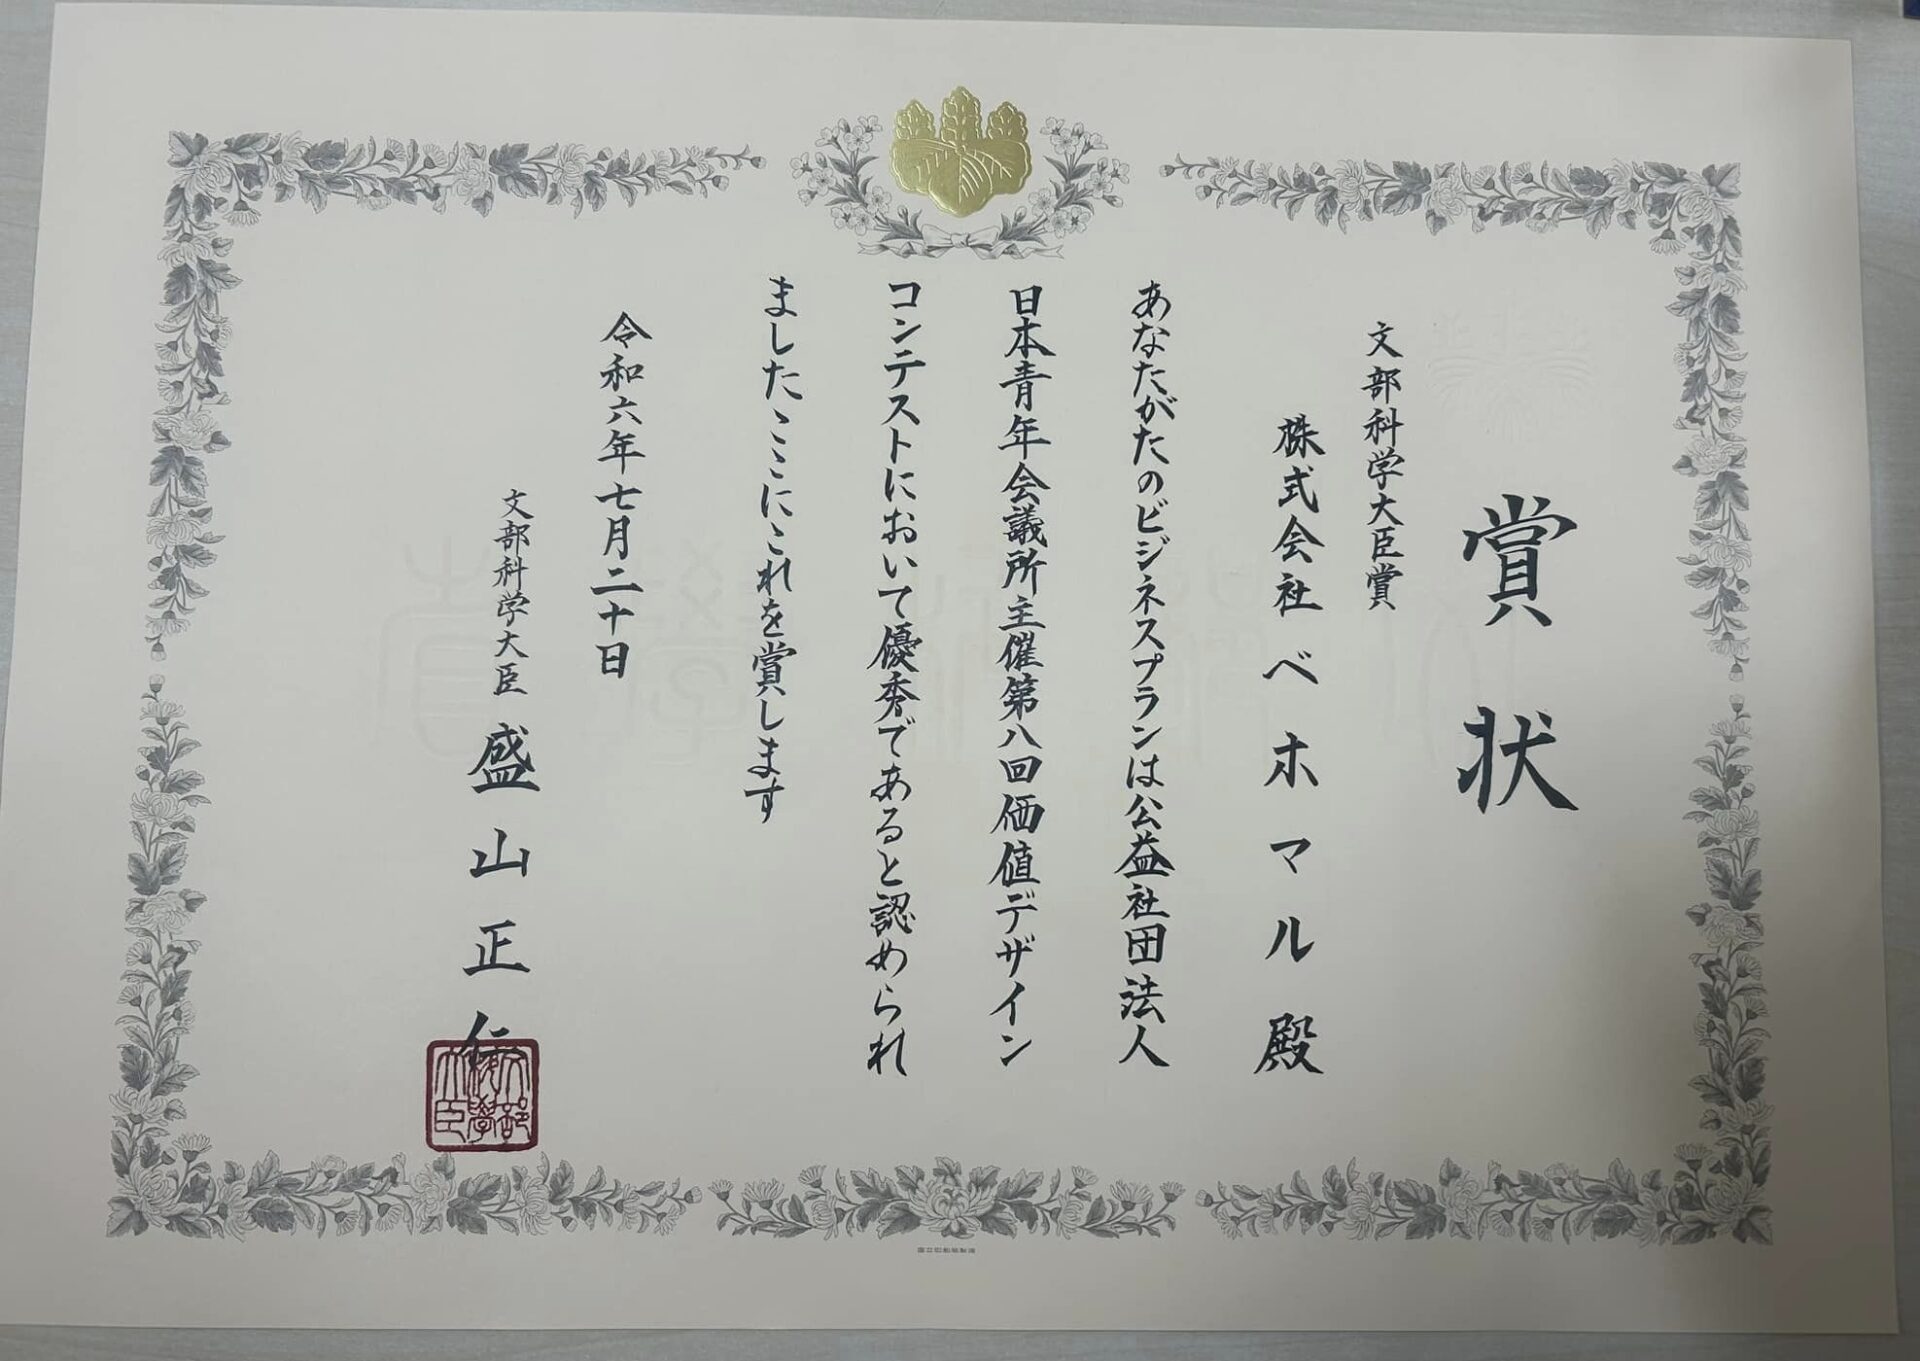 賞状
文部科学大臣賞
株式会社ベホマル殿
あなたがたのビジネスプランは公益社団法人
日本青年会議所主催第八回価値デザイン
コンテストにおいて優秀であると認められ
ましたここにこれを賞します
令和六年七月二十日
文部科学大臣 盛山正仁
文部科学大臣